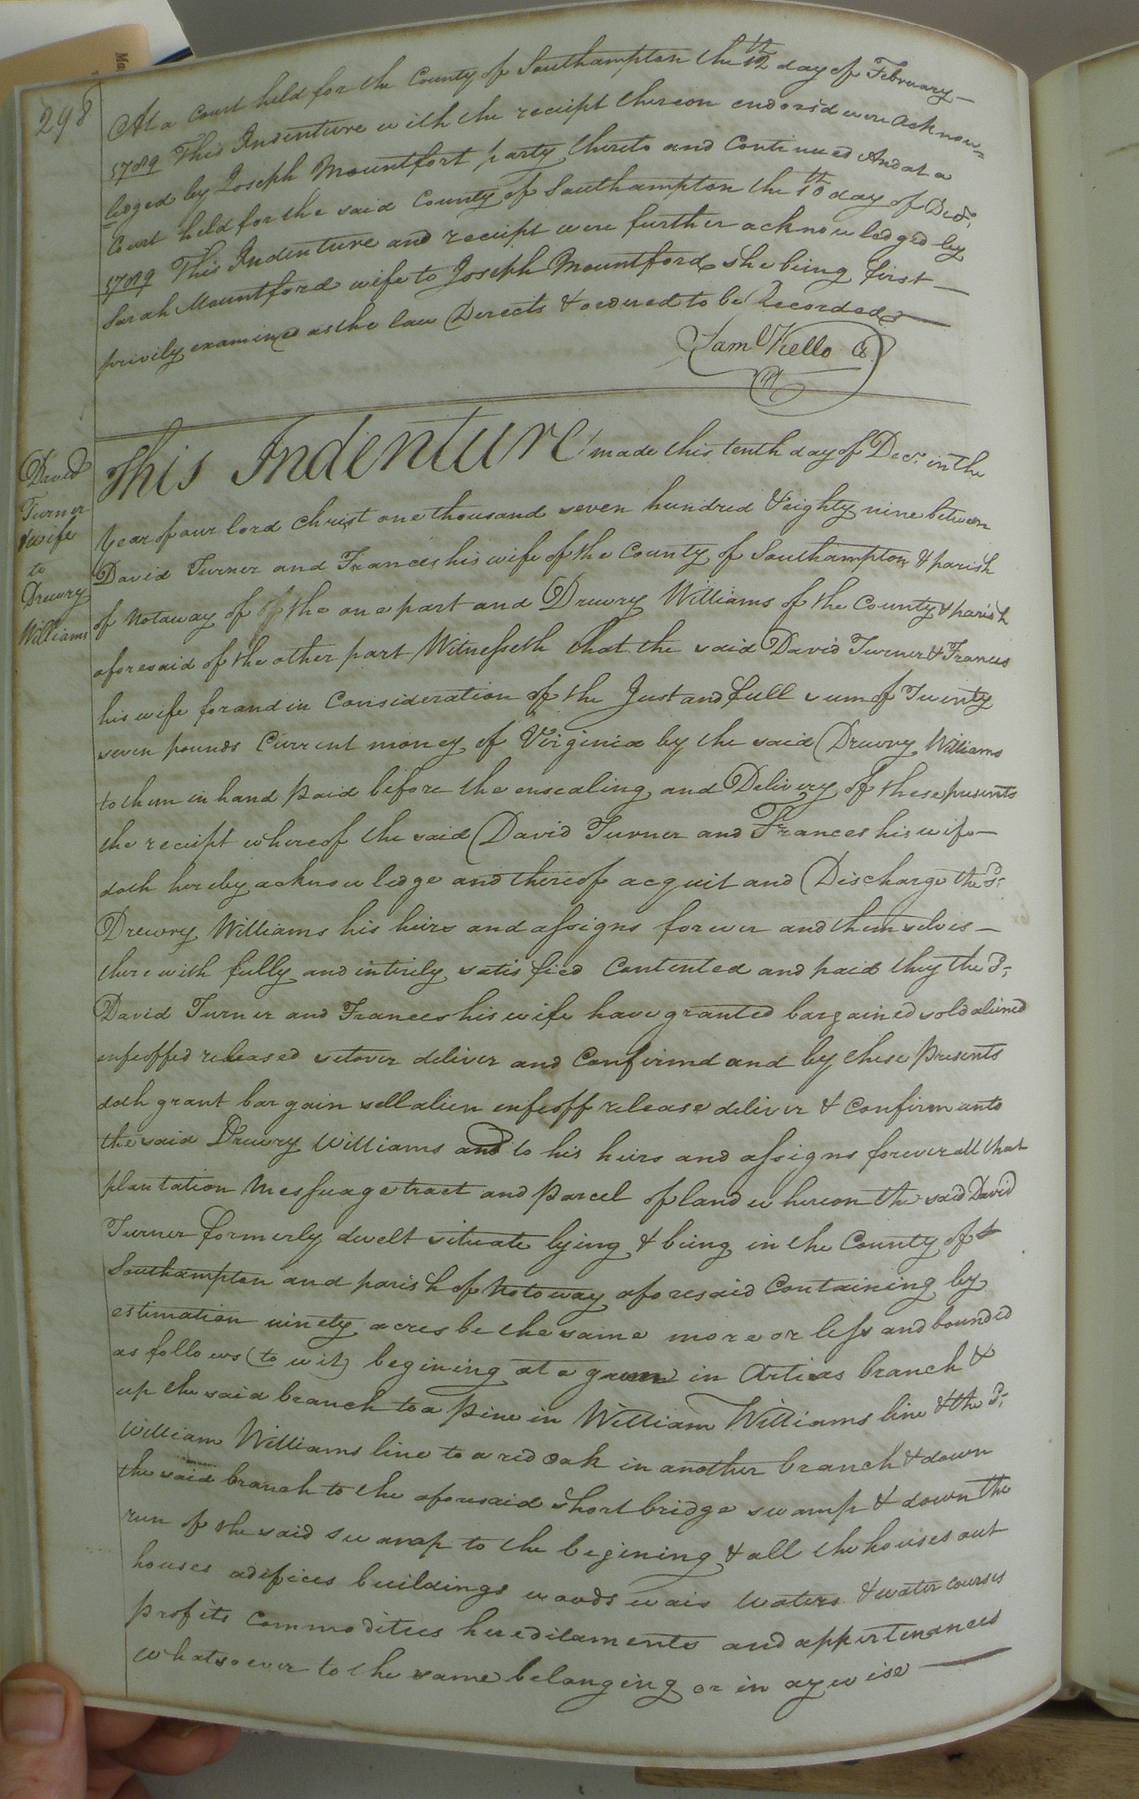 298
At a Court held for the County of Southampton the 12th day of February
1789 This Indenture with the receipt thereon endorsd were acknow=
ledged by Joseph Mountfort party thereto and Continued And at a
Court held for the said County of Southampton the 10th day of Decr.
1789 This Indenture and receipt were further acknowledged by
Sarah Mountford wife to Joseph Mountford she being first
privily examined as the law Derects & ordered to be Recorded
Saml Kello Cl.
David
Turner
& wife
to
Drewry
Williams
This Indenture made this tenth day of Decr. in the
Year of our lord Christ one thousand seven hundred & eighty nine between
David Turner and Frances his wife of the County of Southampton & parish
of Notaway of of the one part and Drewry Williams of the County & parish
aforesaid of the other part Witnesseth that the said David Turner & Frances
his wife for and in Consideration of the Just and full sum of Twenty
seven pounds Current money of Virginia by the said Drewry Williams
to them in hand paid before the ensealing and Delivery of these presents
the receipt whereof the said David Turner and Frances his wife
doth hereby acknowledge and thereof acquit and Discharge the Sd.
Drewry Williams his heirs and assigns forever and themselves
therewith fully and intirely satisfied Contented and paid they the Sd.
David Turner and Frances his wife have granted bargained sold aliened
enfeoffed released setover deliver and Confirmd and by these Presents
doth grant bargain sell alien enfeoff release deliver & Confirm unto
the said Drewry Williams and to his heirs and assigns forever all that
plantation Messuage tract and parcel of land whereon the said David
Turner formerly dwelt situate lying & being in the County of
Southampton and parish of Notoway aforesaid Containing by
estimation ninety acres be the same more or less and bounded
as follows (to wit) begining at a gum in Arties branch &
up the said branch to a pine in William Williams line & the Sd.
William Williams line to a red oak in another branch & down
the said branch to the aforesaid short bridge swamp & down the
run of the said swamp to the begining & all the houses out
houses adefices buildings woods wais waters & water courses
profits Commodities heredilaments and appertenances
whatsoever to the same belonging or in aywise